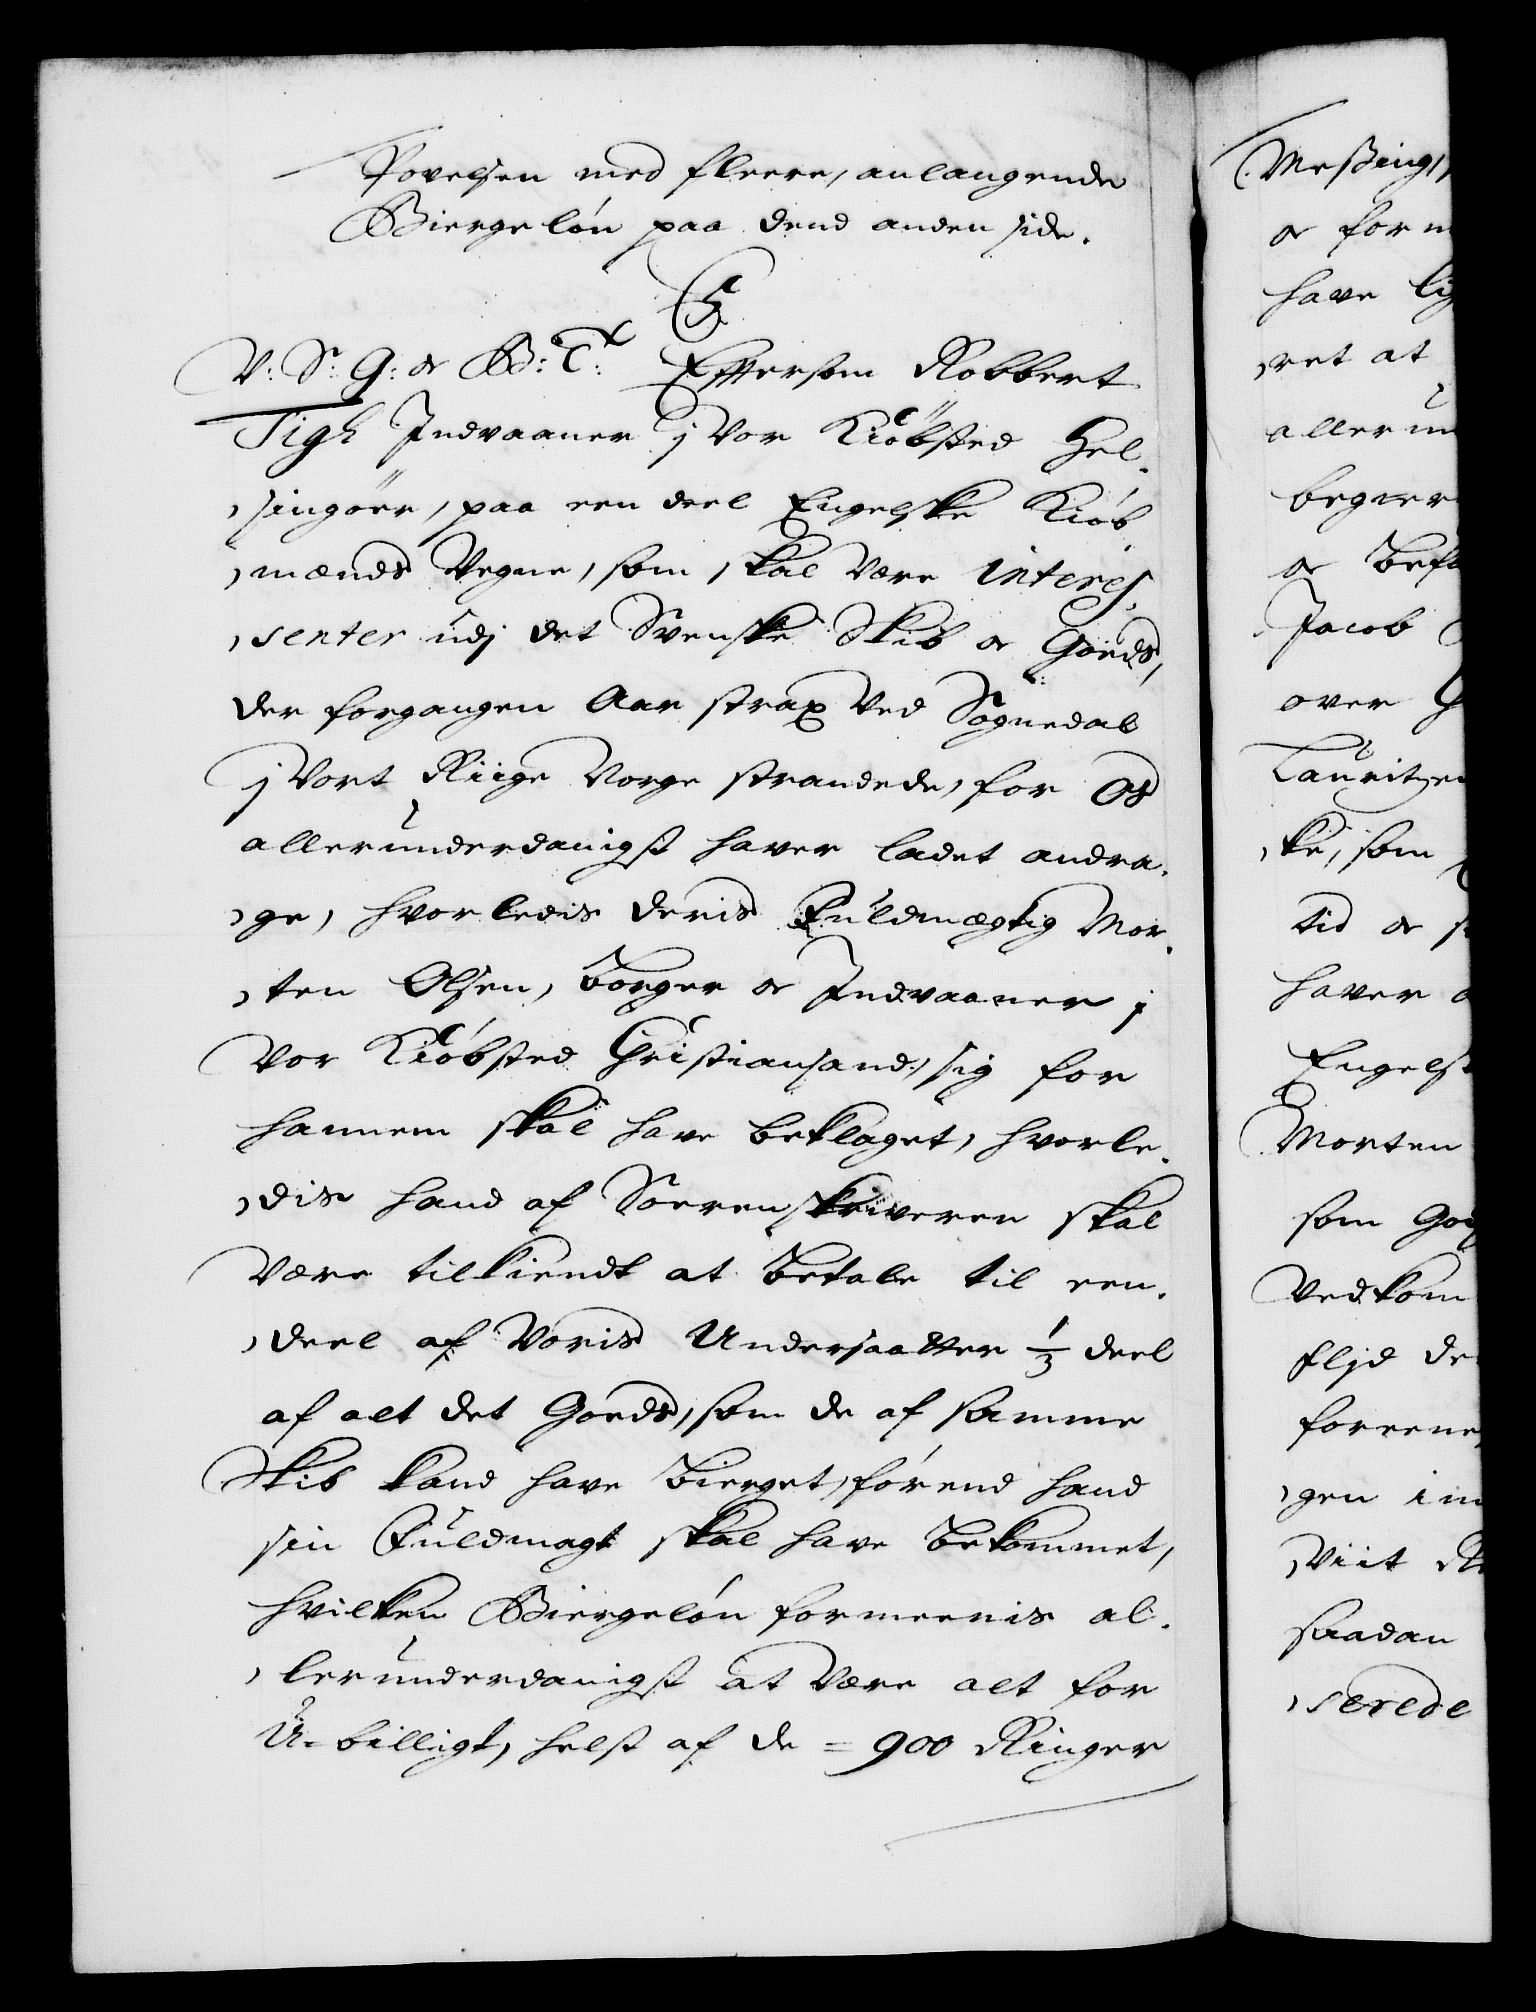 Povelsen med fleere, anlangende
Biergeløn paa dend anden side.
C5
V: S: G: oc B: T: Eftersom Robbert
Tigh Indvaaner j Vor Kiöbsted Hel,
,singöer, paa een deel Engelske Kiöb,
,mænds Vegne, som skal være interes,
,senter udj det Svenske Skib oc Goeds,
der forgangen Aar strax ved Sognedal
j Vort Riige Norge strandede, for Os
allerunderdanigst haver ladet andra,
,ge, hvorledis deris Fuldmægtig Mor,
,ten Olsen, Borger oc Indvaaner j
Vor Kiöbsted Christiansand, sig for
hannem skal have beklaget, hvorle,
,dis hand af Soerenskriveren skal
være tilkiendt at betale til een,
,deel af Voris Undersaatter 1/3 deel
af alt det Goeds, som de af samme
Skib kand have bierget, förend hand
sin Fuldmagt skal have bekommet,
hvilken Biergelön formeenis al,
,lerunderdanigst at være alt for
U-billigt, helst af de = 900 Ringer
Messing,
oc for
have
,ret at
begier
oc
Jacob
over
Lauritzen
,ke, som
tid oc
haver
Engels
Morten
som
Vedkom
flid de
foreene
,gen
,viit
saadan
,serede